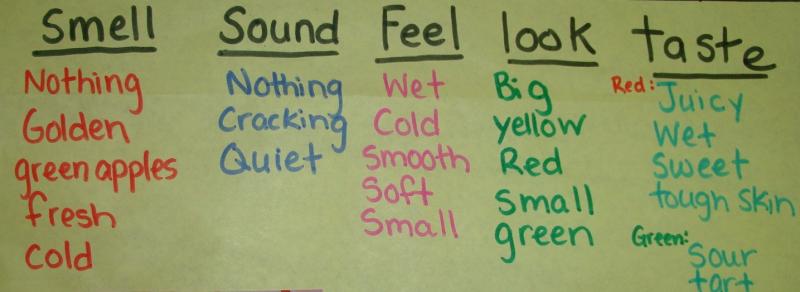 Smell
Nothing
Golden
green apples
fresh
cold
Sound
Nothing
Cracking
Quiet
Feel
Wet
Cold
Smooth
Soft
Small
look
Big
yellow
Red
small
green
taste
Red: Juicy
Wet
Sweet
tough skin
Green: Sour
tart